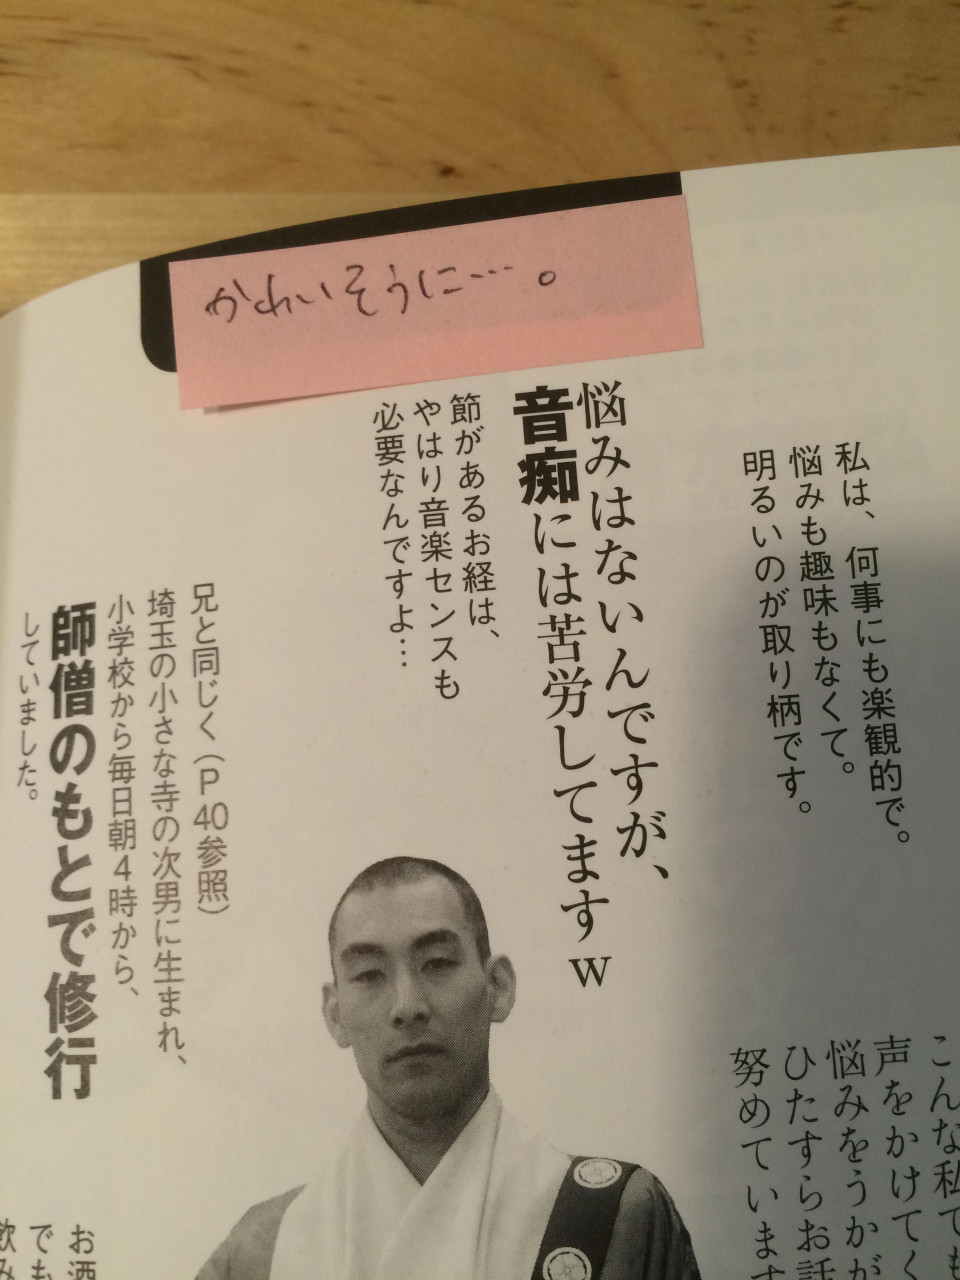 かわいそうに…。
私は、何事にも楽観的で。
悩みも趣味もなくて。
明るいのが取り柄です。
悩みはないんですが、
音痴には苦労してますw
節があるお経は、
やはり音楽センスも
必要なんですよ…
兄と同じく(P40参照)
埼玉の小さな寺の次男に生まれ、
小学校から毎日朝4時から、
師僧のもとで修行
していました。
こんな私でも
声をかけてく
悩みをうかが
ひたすらお話
努めています
お酒
でも
飲み